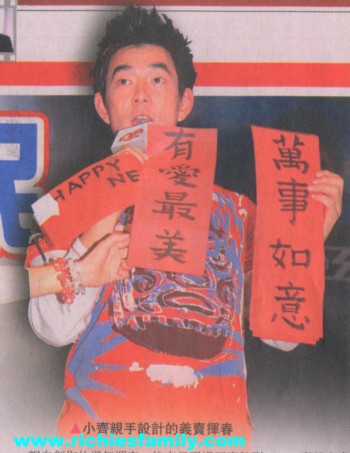 HAPPY
NE
有愛最美
萬事如意
▲小齊親手設計的義賣揮春
www.richiesfamily.com